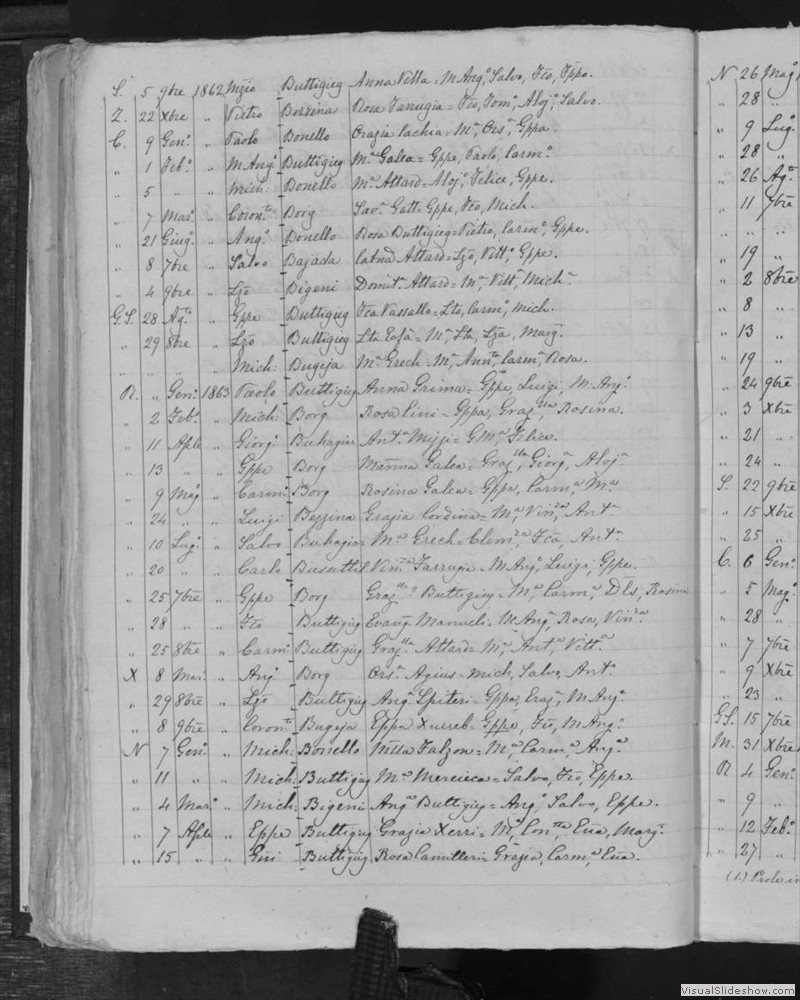 S. 5 9bre 1862 Mzio Buttigieg Anna Vella = M Ang.º, Salvo, Fco, Gppe.
Z. 22 Xbre " Pietro Bezzina Rosa Farrugia = Fco, Tom.º, Aloj.º, Salvo.
C. 9 Gen.º " Paolo Bonello Grazia Cachia = M.ª, Ors.ª, Gppa.
" 1 Feb.º " M Ang.º Buttigieg M.ª Galea = Gppe, Paolo, Carm.º
" 5 " " Mich: Bonello M.ª Attard = Aloj.º, Felice, Gppe.
" 7 Mar.º " Coron.to Borg Sav.ª Gatt = Gppe, Fco, Mich.
" 21 Giug.º " Ang.º Bonello Rosa Buttigieg = Pietro, Carm.º, Gppe.
" 8 7bre " Salvo Bajada Catna Attard = Lzo, Vitt.º, Gppe.
" 4 9bre " Lzo Bigeni Domit.ª Attard = M.ª, Vitt.ª, Mich.ª
G.S. 28 Ag.to " Gppe Buttigieg Fca Vassallo = Carm.º, Mich.
" 29 8bre " Lzo Buttigieg = M.ª, Lza, Marg.ª
" " " Mich: Bugeja M.ª Grech = M.ª, Ann.ta, Carm.ª, Rosa.
R. " Gen.º 1863 Paolo Buttigieg Anna Grima = Gppe, Luigi, M. Ang.º
" 2 Feb.º " Mich: Borg Rosa Cini = Gppa, Graz.lla, Rosina.
" 11 Aple " Giorg.º Buhagiar Ant.ª Mizzi = Felice.
" 13 " " Gppe Borg Marina Galea = Graz.lla, Giorg.ª, Aloj.ª
" 9 Mag.º " Carm.º Borg Rosina Galea = Gppa, Carm.ª, M.ª
" 24 " " Luigi Bezzina Grazia Cordina = M.ª, Vin.za, Ant.ª
" 10 Lug.º " Salvo Buhagiar M.ª Grech = Clem.za, Fca, Ant.ª
" 20 " " Carlo Busuttil Vin.za Farrugia = M Ang.º, Luigi, Gppe.
" 25 7bre " Gppe Borg Graz.lla Buttigieg = M.ª, Carm.ª, Rosina
" 28 " " Fco Buttigieg Evang.ª Manueli = M Ang.ª, Rosa, Vin.za
" 25 8bre " Carm.º Buttigieg Graz.lla Attard = M.ª, Ant.ª, Vitt.ª
X 8 Mar.º " Ang.º Borg Ors.ª Agius = Mich, Salvo, Ant.º
" 29 8bre " Lzo Buttigieg Ang.ª Spiteri = Gppa, Graz.ª, M Ang.ª
" 8 9bre " Coron.to Bugeja Gppa Xuereb = Gppe, Fco, M Ang.º
N 7 Gen.º " Mich: Bonello Falzon = M.ª, Carm.ª, Ang.ª
" 11 " " Mich: Buttigieg M.ª Mercieca = Salvo, Fco, Gppe.
" 4 Mar.º " Mich: Bigeni Ang.ª Buttigieg = Ang.º, Salvo, Gppe.
" 7 Aple " Gppe Buttigieg Grazia Xerri = M.ª, Eva, Marg.ª
" 15 " " Gni Buttigieg Rosa Camilleri = Grazia, Carm.ª, Eva.
N 26 Mag.º
" 28 "
" 9 Lug.º
" 28 "
" 26 Ag.to
" 11 7bre
" " "
" 19 "
" 2 8bre
" 8 "
" 13 "
" 19 "
" 24 9bre
" 3 Xbre
" 21 "
" 24 "
S. 22 9bre
" 15 Xbre
" 25 "
C. 6 Gen.º
" 5 Mag.º
" 28 "
" 7 7bre
" 9 Xbre
" 23 "
G.S. 15 7bre
M. 31 Xbre
R 4 Gen.º
" 9 "
" 12 Feb.º
" 27 "
(1.)
VisualSlideshow.com